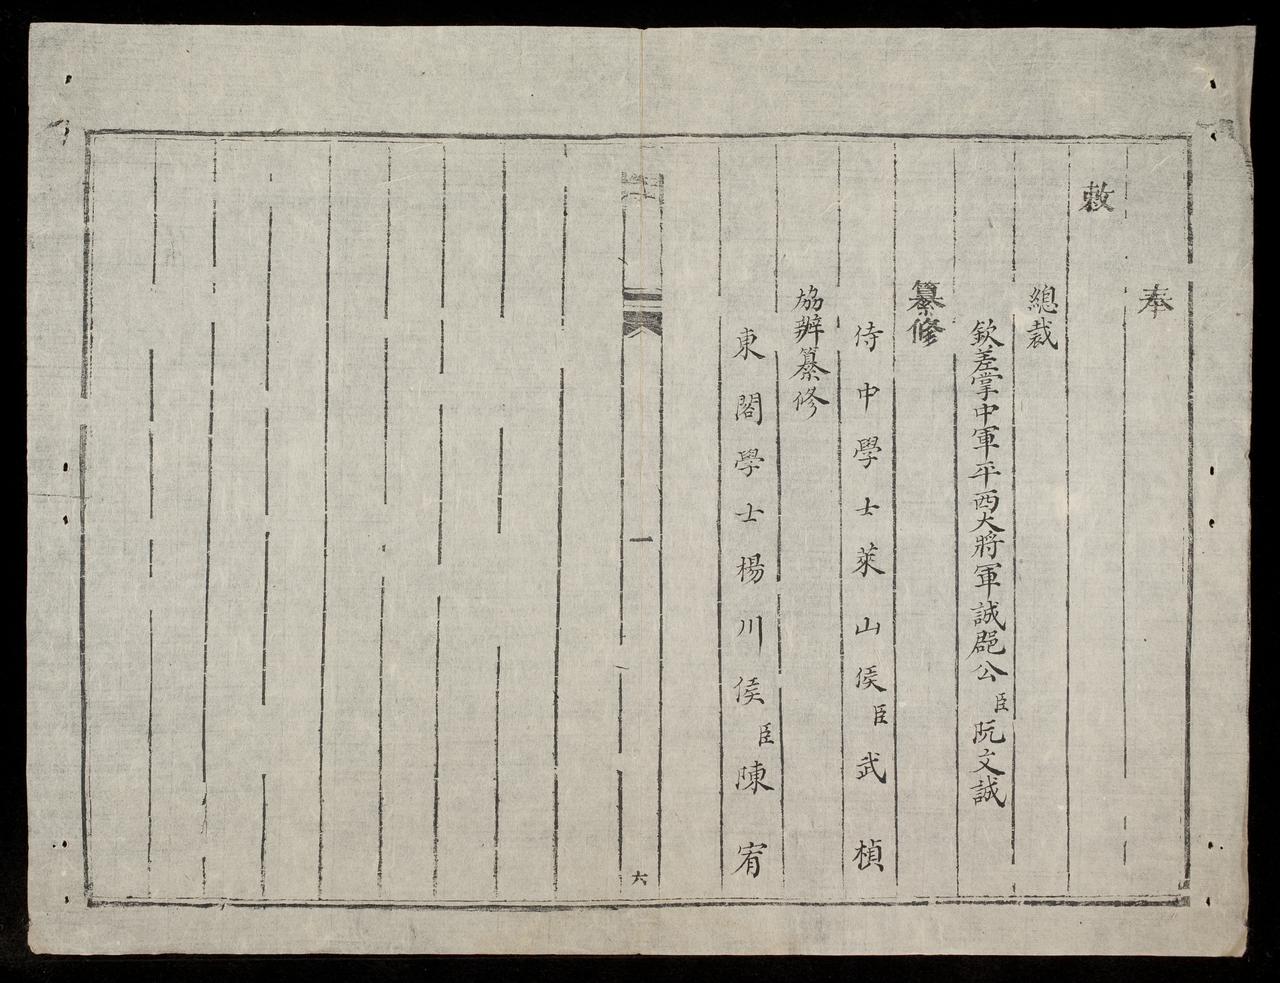 奉
敕
總裁
欽差掌中軍平西大將軍誠郡公臣阮文誠
纂修
侍中學士萊山侯臣武楨
協辦纂修
東閣學士楊川侯臣陳宥
一
六